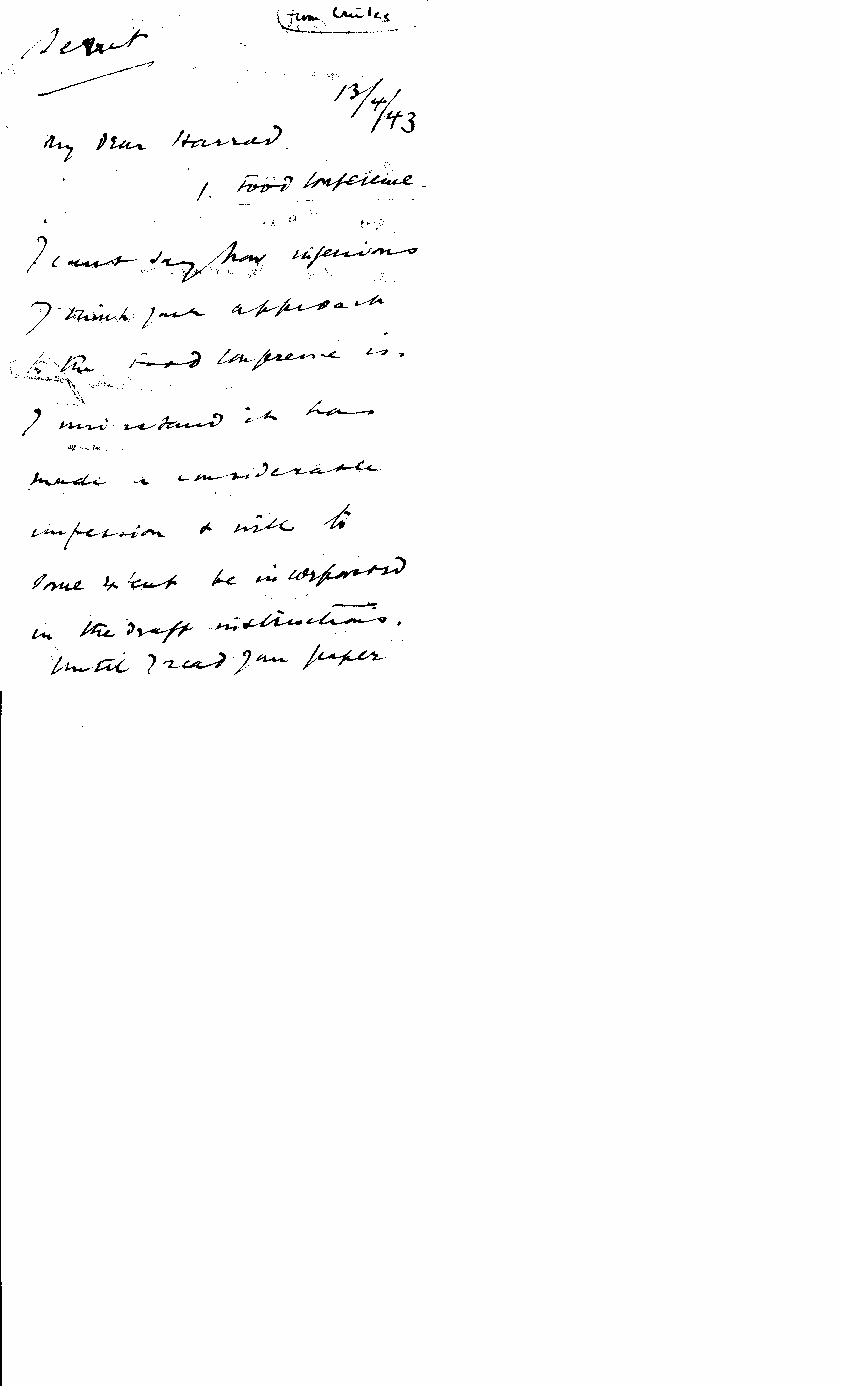 (from
Secret
13/4/43
My Dear Harrod
1. Food Conference.
I can't say how ingenious
I think your approach
to the Food Conference is.
I understand it has
made a considerable
impression & will to
some extent be incorporated
in the draft instructions.
Until I read your paper